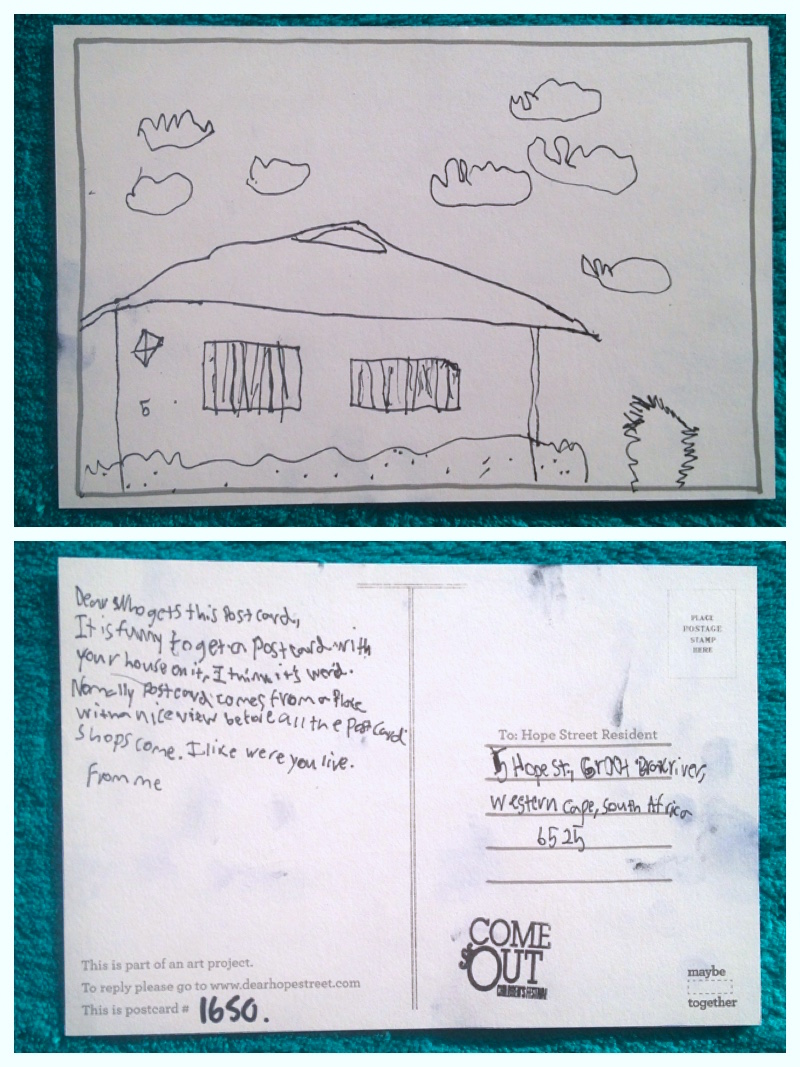 5
Dear who gets this Post card,
It is funny to get a Postcard with
your house on it, I think it's werd.
Normally postcard comes from a Place
with a nice view before all the post card
shops come. I like were you live.
From me
This is part of an art project.
To reply please go to www.dearhopestreet.com
This is postcard # 1650.
PLACE
POSTAGE
STAMP
HERE
To: Hope Street Resident
5 Hope St, Groot Brakrivier,
western cape, south Africa
6525
COME
OUT
CHILDREN'S FESTIVAL
maybe
together